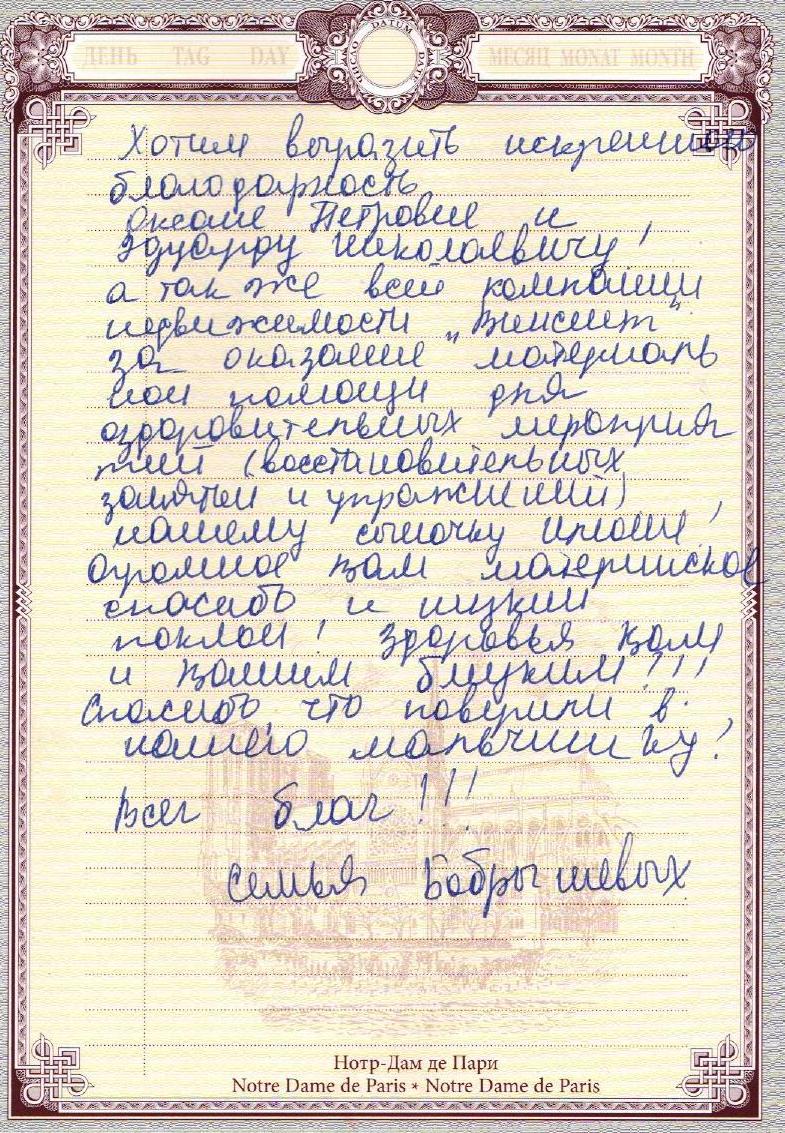 ДЕНЬ TAG DAY
DATUM
МЕСЯЦ MONAT MONTH
Хотим выразить искреннюю
благодарность
Оксане Петровне и
Эдуарду Николаевичу!
а так же всей компании
недвижимости „Винсент"
за оказание материаль
ной помощи для
оздоровительных мероприя
тий (восстановительных
занятий и упражнений)
нашему сыночку !
Огромное Вам материнское
спасибо и низкий
поклон! Здоровья Вам
и Вашим близким!!!
Спасибо, что поверили в
нашего мальчишку!
Всех благ!!!
Семья Бобрышевых
Нотр-Дам де Пари
Notre Dame de Paris * Notre Dame de Paris